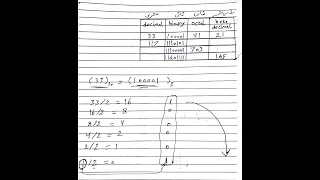 عشري ثنائي
decimal binary octal hexa decimal
33 100001 41 21
117 1110101
703
1AF
(33)₁₀ = (100001)₂
33/2 = 16 1
16/2 = 8 0
8/2 = 4 0
4/2 = 2 0
2/2 = 1 0
1/2 = 0 1